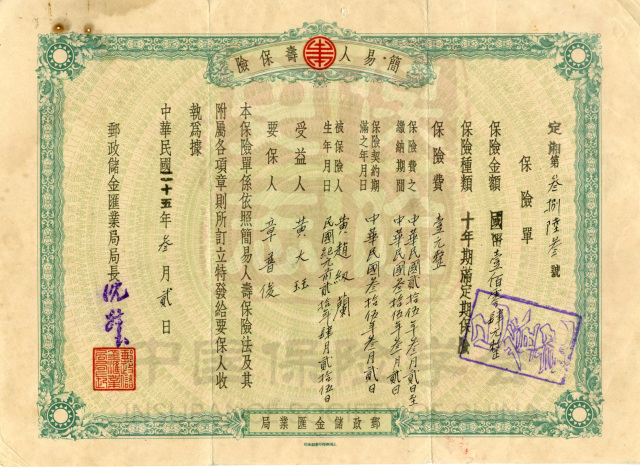 簡易人壽保險
定期第叁捌陸叁號
保險單
保險金額 國幣壹佰零肆元整
保險種類 十年期滿定期保險
保險費 壹元整
保險費之繳納期間 中華民國貳拾伍年叁月貳日至
中華民國叁拾伍年叁月貳日
保險契約期滿之年月日 中華民國叁拾伍年叁月貳日
被保險人 黃趙級蘭
生年月日 民國紀元前貳拾年肆月貳拾五日
受益人 黃大
要保人 章晋俊
本保險單係依照簡易人壽保險法及其
附屬各項章則所訂立特發給要保人收
執爲據
中華民國二十五年叁月貳日
郵政儲金匯業局局長
郵政儲金匯業局
中國保險學